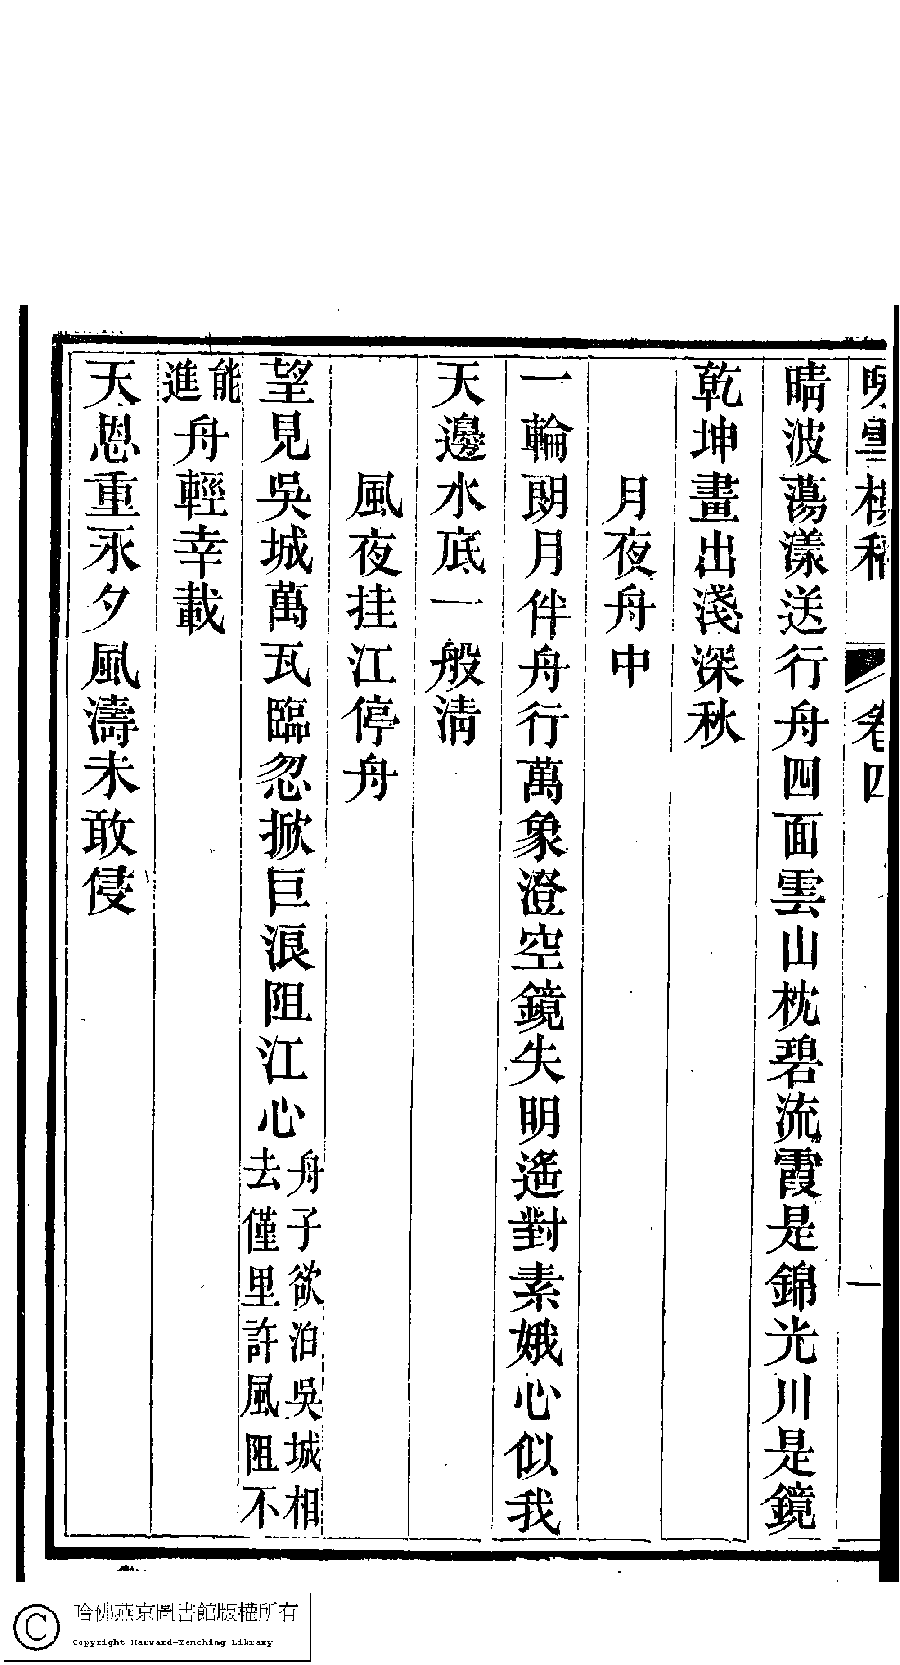 雪樓稿 卷四 一
晴波蕩漾送行舟四面雲山枕碧流霞是錦光川是鏡
乾坤畫出淺深秋
月夜舟中
一輪朗月伴舟行萬象澄空鏡失明遙對素娥心似我
天邊水底一般清
風夜挂江停舟
望見吳城萬瓦臨忽掀巨浪阻江心舟子欲泊吳城相去僅里許風阻不
能進舟輕幸載
天恩重永夕風濤未敢侵
哈佛燕京圖書館版權所有
Copyright Harvard-Yenching Library